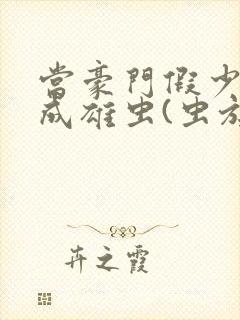 當豪門假少
成雄虫(虫族
卉之霞